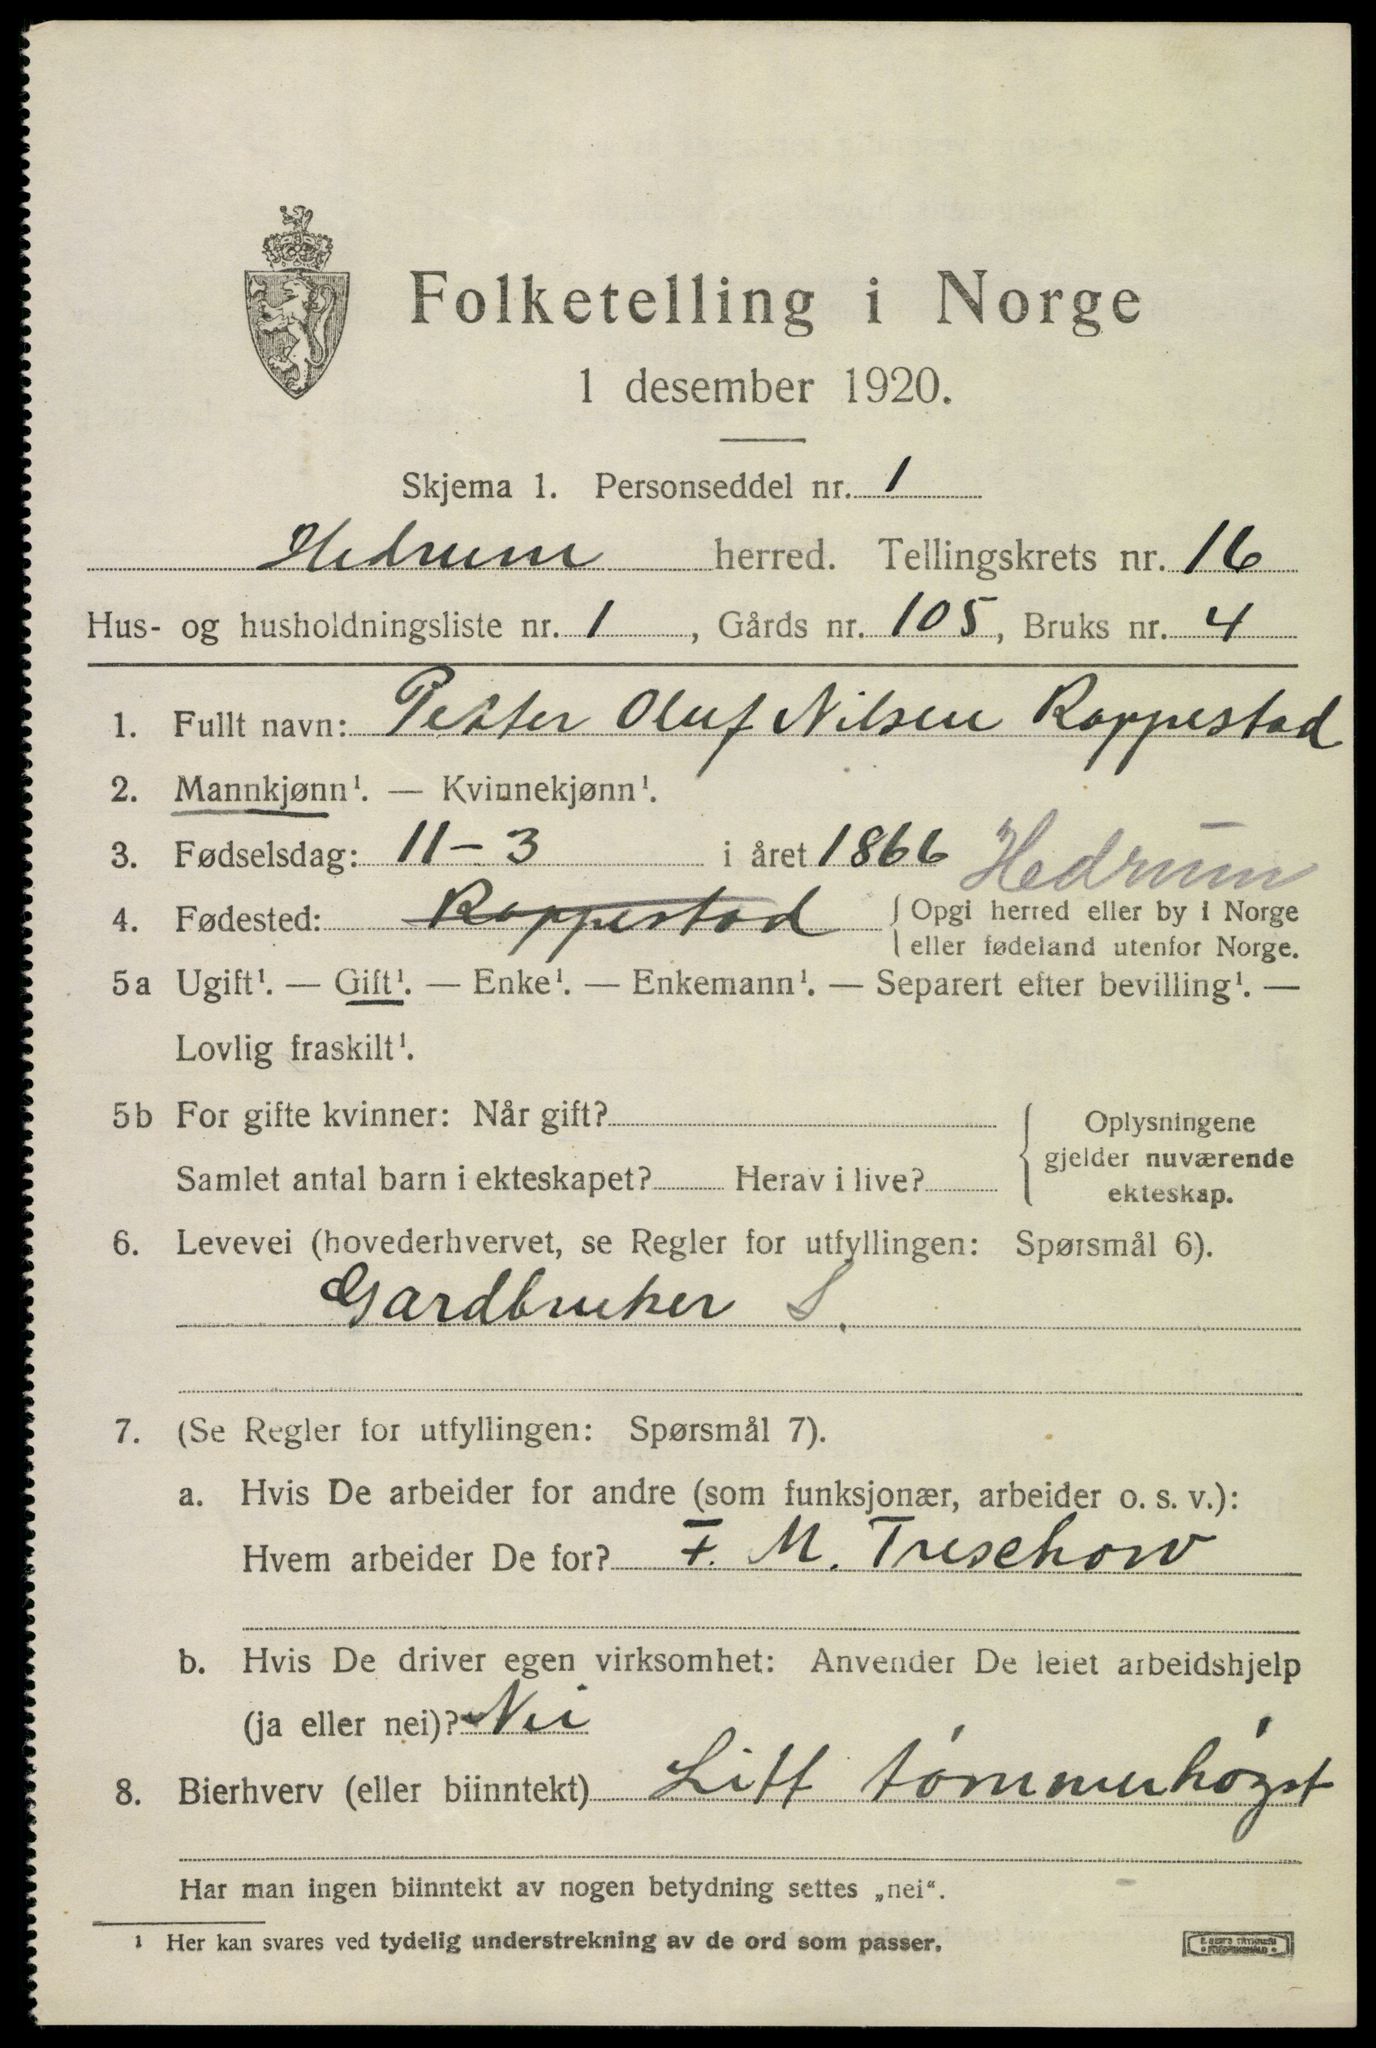 Folketelling i Norge
1 desember 1920.
Skjema 1. Personseddel nr. 1
Hedrum herred. Tellingskrets nr. 16
Hus- og husholdningsliste nr. 1, Gårds nr. 105, Bruks nr. 4
1. Fullt navn: Petter Oluf Nilsen Rappestad
2. Mannkjønn¹. — Kvinnekjønn¹.
3. Fødselsdag: 11-3 i året 1866 Hedrum
4. Fødested: Rappestad { Opgi herred eller by i Norge
eller fødeland utenfor Norge.
5a Ugift¹. — Gift¹. — Enke¹. — Enkemann¹. — Separert efter bevilling¹. —
Lovlig fraskilt¹.
5b For gifte kvinner: Når gift?
Samlet antal barn i ekteskapet? Herav i live?
{ Oplysningene
gjelder nuværende
ekteskap.
6. Levevei (hovederhvervet, se Regler for utfyllingen: Spørsmål 6).
Gardbruker S.
7. (Se Regler for utfyllingen: Spørsmål 7).
a. Hvis De arbeider for andre (som funksjonær, arbeider o. s. v.):
Hvem arbeider De for? F. M. Treschow
b. Hvis De driver egen virksomhet: Anvender De leiet arbeidshjelp
(ja eller nei)? Nei
8. Bierhverv (eller biinntekt) Litt tømmerhøgst
Har man ingen biinntekt av nogen betydning settes „nei“.
¹ Her kan svares ved tydelig understrekning av de ord som passer.